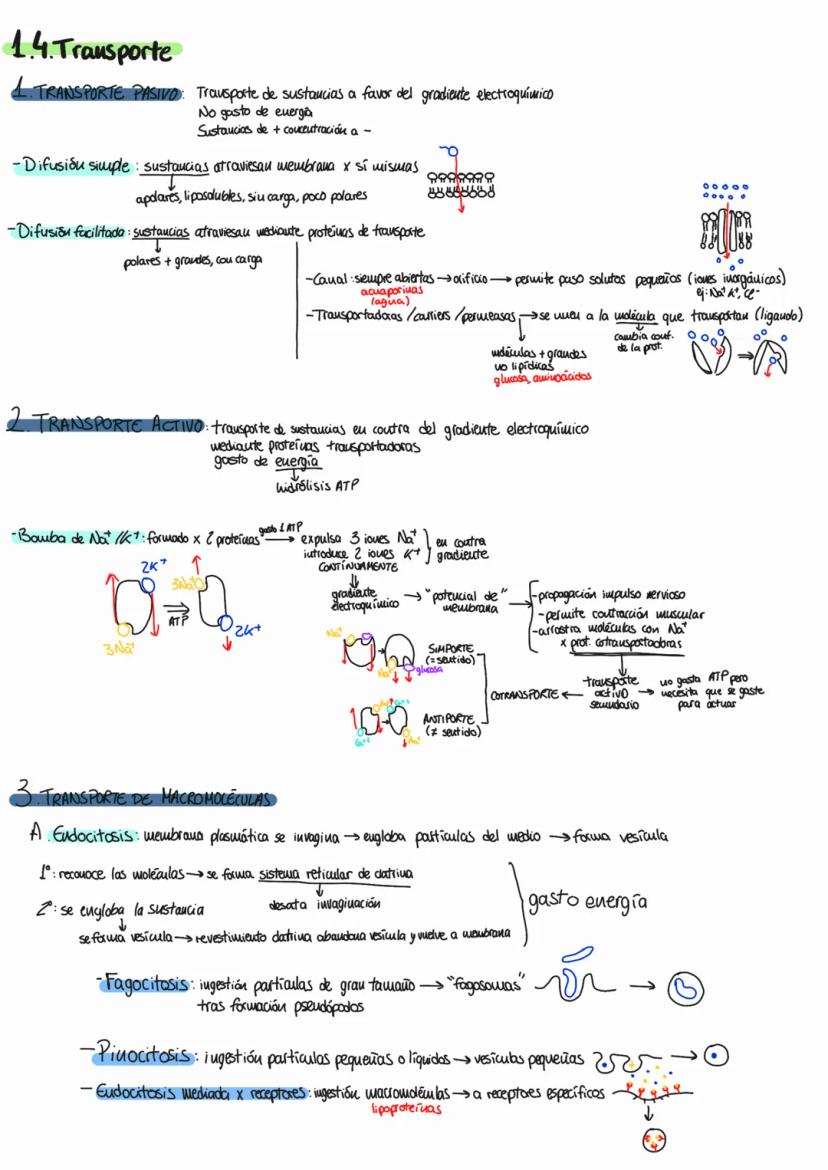 1.4. Transporte
1. TRANSPORTE PASIVO: Transporte de sustancias a favor del gradiente electroquímico
No gasto de energía
Sustancias de + concentración a -
- Difusión simple: sustancias atraviesan membrana x sí mismas
apolares, liposolubles, sin carga, poco polares
- Difusión facilitada: sustancias atraviesan mediante proteínas de transporte
polares + grandes, con carga
- Canal: siempre abiertas → orificio → permite paso solutos pequeños (iones inorgánicos)
acuaporinas
(agua)
ej: Na⁺ K⁺, Cl⁻
- Transportadoras / carriers / permeasas → se unen a la molécula que transportan (ligando)
cambia conf.
de la prot.
moléculas + grandes
no lipídicas
glucosa, aminoácidos
2. TRANSPORTE ACTIVO: transporte de sustancias en contra del gradiente electroquímico
mediante proteínas transportadoras
gasto de energía
hidrólisis ATP
- Bomba de Na⁺/K⁺: formado x 2 proteínas gasto 1 ATP → expulsa 3 iones Na⁺
introduce 2 iones K⁺
CONTÍNUAMENTE
en contra
gradiente
2K⁺
3Na⁺
ATP
3Na⁺
2K⁺
gradiente
electroquímico → "potencial de
membrana" →
- propagación impulso nervioso
- permite contracción muscular
- arrastra moléculas con Na⁺
x prot. cotransportadoras
transporte
activo
secundario
→ no gasta ATP pero
necesita que se gaste
para actuar
COTRANSPORTE ←
Na⁺
Na⁺
glucosa
SIMPORTE
(= sentido)
Na⁺
Ca⁺²
Ca⁺²
Na⁺
ANTIPORTE
(≠ sentido)
3. TRANSPORTE DE MACROMOLÉCULAS
A. Endocitosis: membrana plasmática se invagina → engloba partículas del medio → forma vesícula
1º: reconoce las moléculas → se forma sistema reticular de clatrina
desata invaginación
2º: se engloba la sustancia
se forma vesícula → revestimiento clatrina abandona vesícula y vuelve a membrana
gasto energía
- Fagocitosis: ingestión partículas de gran tamaño → "fagosomas"
tras formación pseudópodos
- Pinocitosis: ingestión partículas pequeñas o líquidos → vesículas pequeñas
- Endocitosis mediada x receptores: ingestión macromoléculas → a receptores específicos
lipoproteínas